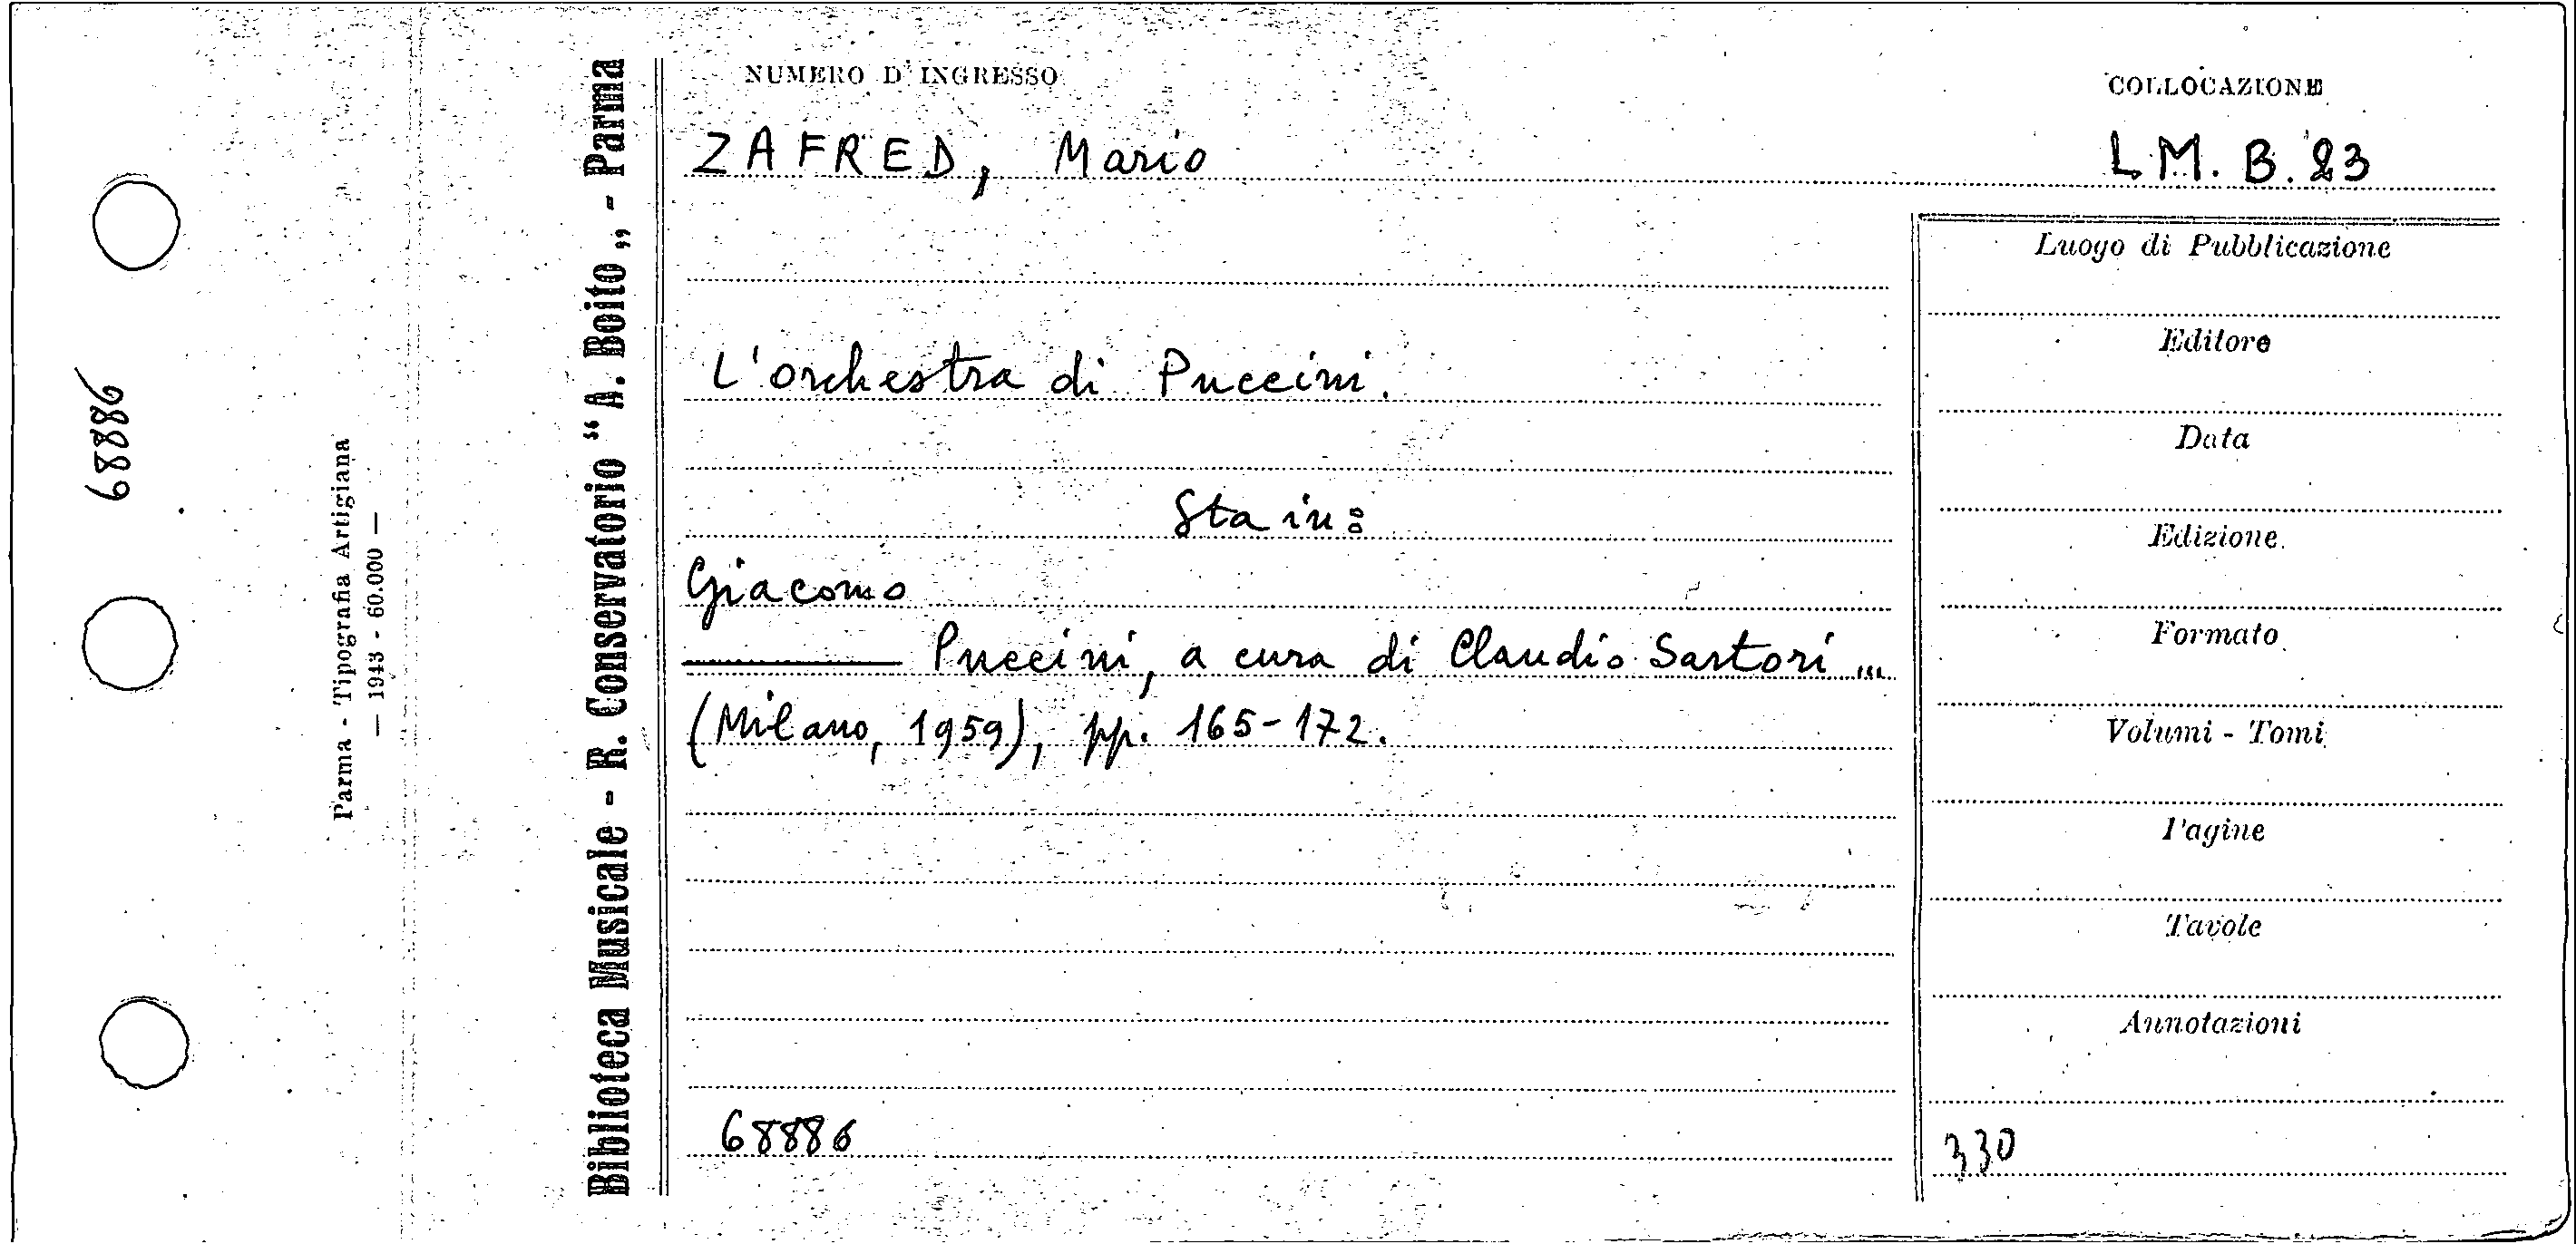 68886
Parma - Tipografia Artigiana
— 1943 - 60.000 —
Biblioteca Musicale - R. Conservatorio “A. Boito„ - Parma
NUMERO D'INGRESSO
COLLOCAZIONE
ZAFRED, Mario
L.M. B. 23
L'orchestra di Puccini.
Sta in:
Giacomo
——— Puccini, a cura di Claudio Sartori ...
(Milano, 1959), pp. 165-172.
68886
Luogo di Pubblicazione
Editore
Data
Edizione
Formato
Volumi - Tomi
Pagine
Tavole
Annotazioni
330